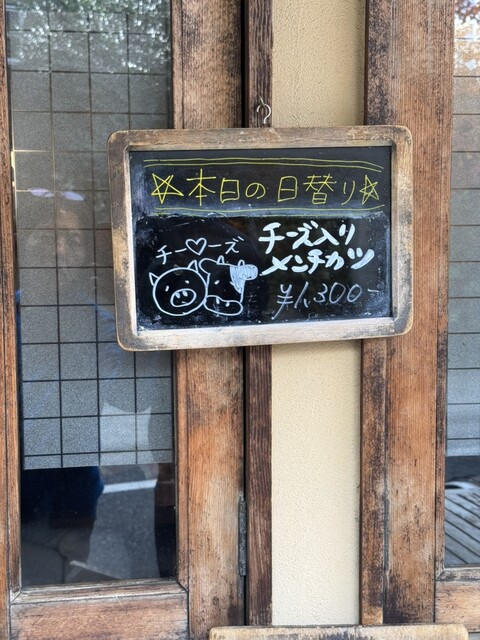 ☆本日の日替り☆
チーズ入り
メンチカツ
チー♡ーズ
¥1,300-